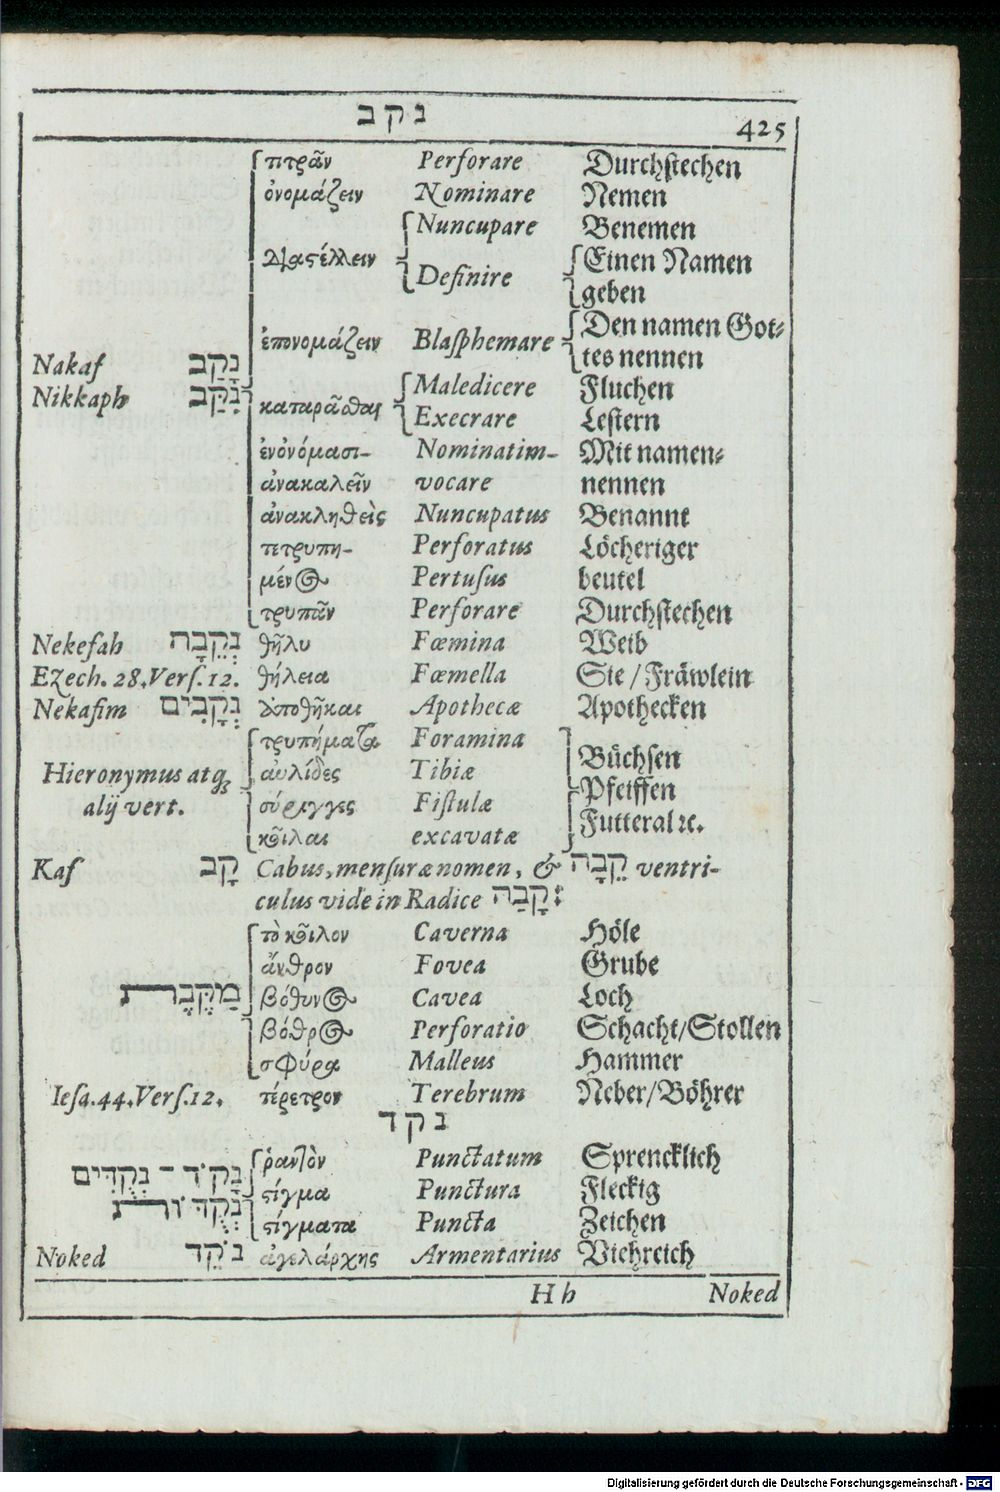 נקב 425
τιτρᾶν Perforare Durchſtechen
ὀνομάζειν Nominare Nemen
Nuncupare Benemen
διαστέλλειν Definire Einen Namen
geben
ἐπονομάζειν Blaſphemare Den namen Got⸗
tes nennen
Nakaf נָקַב
Maledicere Fluchen
Nikkaph נִקַּב
καταρᾶσθαι Execrare Leſtern
ἐνονόμασι- Nominatim- Mit namen⸗
ἀνακαλεῖν vocare nennen
ἀνακληθεὶς Nuncupatus Benannt
τετρυπη- Perforatus Löcheriger
μένος Pertuſus beutel
τρυπᾶν Perforare Durchſtechen
Nekefah נְקֵבָה θῆλυ Fœmina Weib
Ezech. 28. Verſ. 12. θήλεια Fœmella Sie / Fräwlein
Nekafim נְקָבִים ἀποθῆκαι Apothecæ Apothecken
τρυπήματα Foramina
Büchſen
Hieronymus atq; αὐλίδες Tibiæ
Pfeiffen
alij vert. σύριγγες Fiſtulæ
Futteral ꝛc.
κοῖλαι excavatæ
Kaf קָב Cabus, menſuræ nomen, & קֵבָה ventri-
culus vide in Radice קָבַה:
τὸ κοῖλον Caverna Höle
ἄνθρον Fovea Grube
מַקֶּבֶת βόθυνος Cavea Loch
βόθρος Perforatio Schacht/Stollen
σφύρα Malleus Hammer
Ieſa. 44. Verſ. 12. τέρετρον Terebrum Neber/Böhrer
נקד
ῥαντὸν Punctatum Sprencklich
נָקֹד - נְקֻדִּים
στίγμα Punctura Fleckig
נְקֻדּוֹת
στίγματα Puncta Zeichen
Noked נֹקֵד ἀγελάρχης Armentarius Viehreich
H h Noked
Digitalisierung gefördert durch die Deutsche Forschungsgemeinschaft - DFG